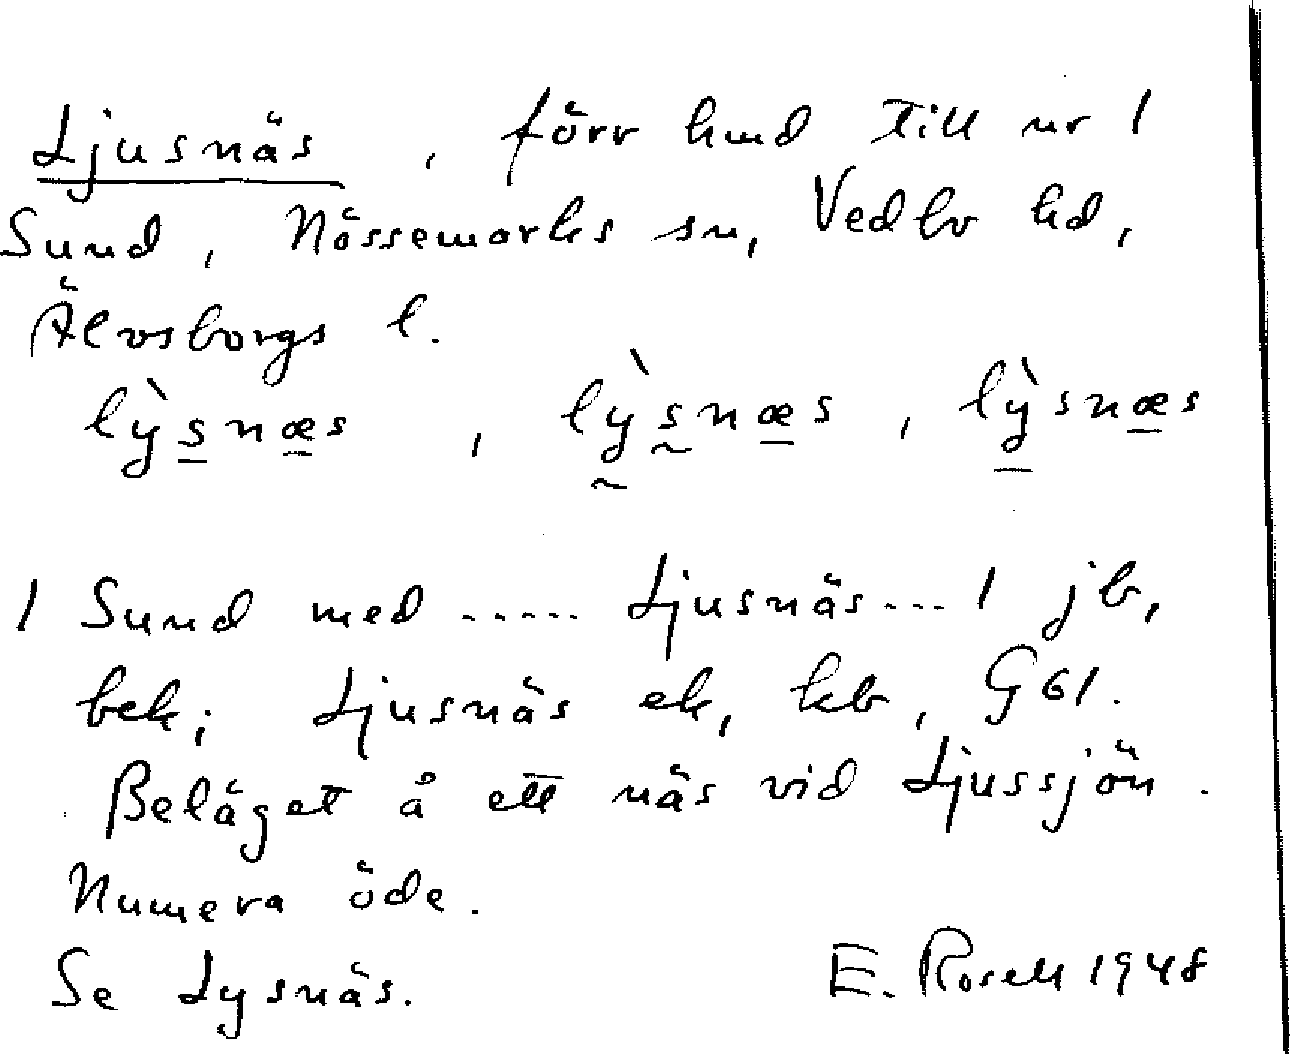 Ljusnäs, förr hmd till nr 1
Sund, Nössemarks sn, Vedbo hd,
Älvsborgs l.
lỳsnæs, lỳsnæs, lỳsnæs
1 Sund med ..... Ljusnäs ... 1 jb,
bek; Ljusnäs ek, kb, G 61.
Beläget å ett näs vid Ljussjön.
Numera öde.
Se Lysnäs. E. Rosell 1948